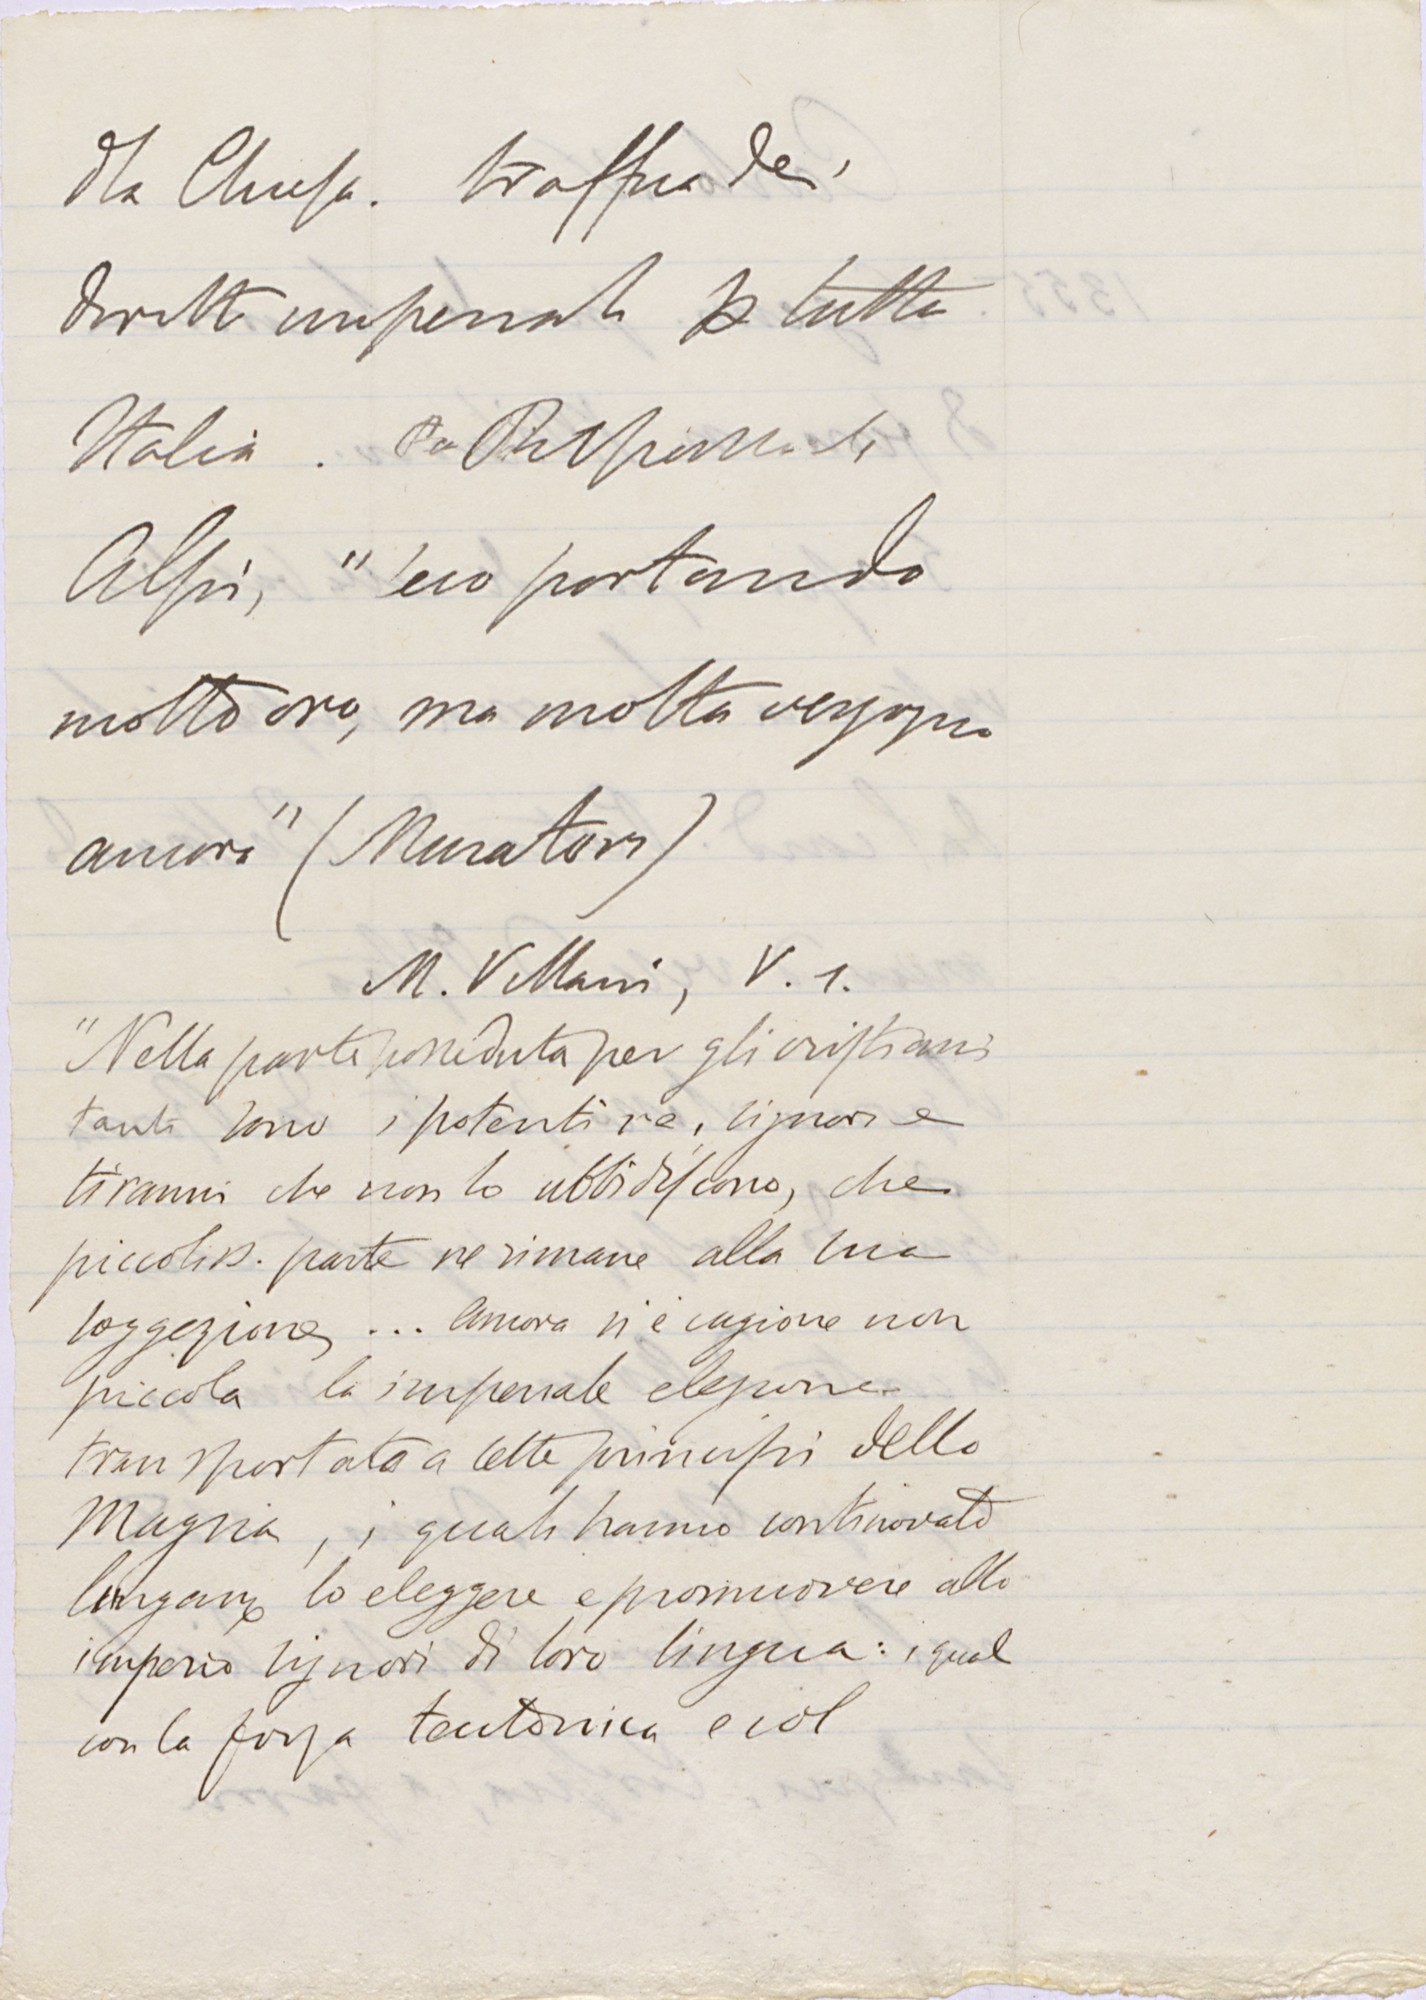 dla Chiesa. traffica dei
diritti imperiali p tutta
Italia. Ripassa le
Alpi, "seco portando
molto oro, ma molta vergogna
ancora" (Muratori)
M. Villani, V. 1.
"Nella parte posseduta per gli cristiani
tanti sono i potenti re, signori e
tiranni che non lo ubbidiscono, che
piccoliss. parte ne rimane alla sua
soggezione, ... ancora si è cagione non
piccola la imperiale elezione
transportata a sette principi dello
Magna, i quali hanno continovato
lungam. lo eleggere e promuovere allo
imperio signori di loro lingua: i quali
con la forza teutonica e col